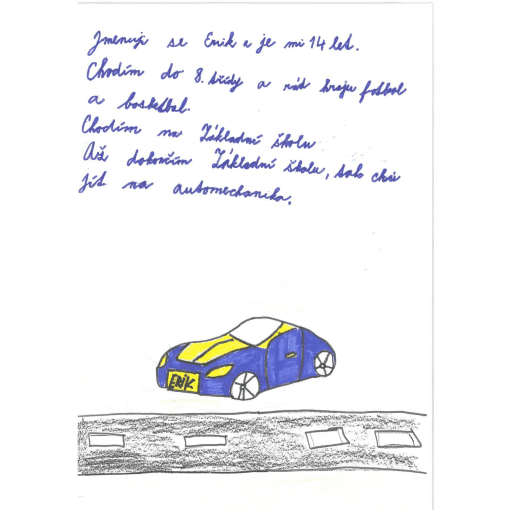 Jmenuji se Erik a je mi 14 let.
Chodím do 8. třídy a rád hraju fotbal
a basketbal.
Chodím na Základní školu
Až dokončím Základní školu, tak chci
jít na automechanika.
ERIK